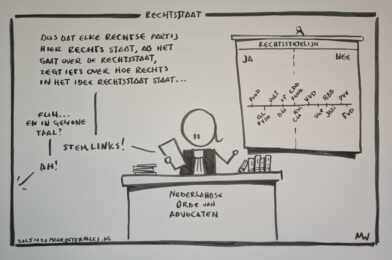 RECHTSSTAAT
DUS DAT ELKE RECHTSE PARTIJ
HIER RECHTS STAAT, ALS HET
GAAT OVER DE RECHTSSTAAT,
ZEGT IETS OVER HOE RECHTS
IN HET IDEE RECHTSSTAAT STAAT...
EUH...
EN IN GEWONE
TAAL?
STEM LINKS!
AH!
RECHTSSTATELIJK
JA
NEE
VOLT
SP
CDA
VVD
PVV
GL
PVDA
FVD
NEDERLANDSE
ORDE VAN
ADVOCATEN
MW